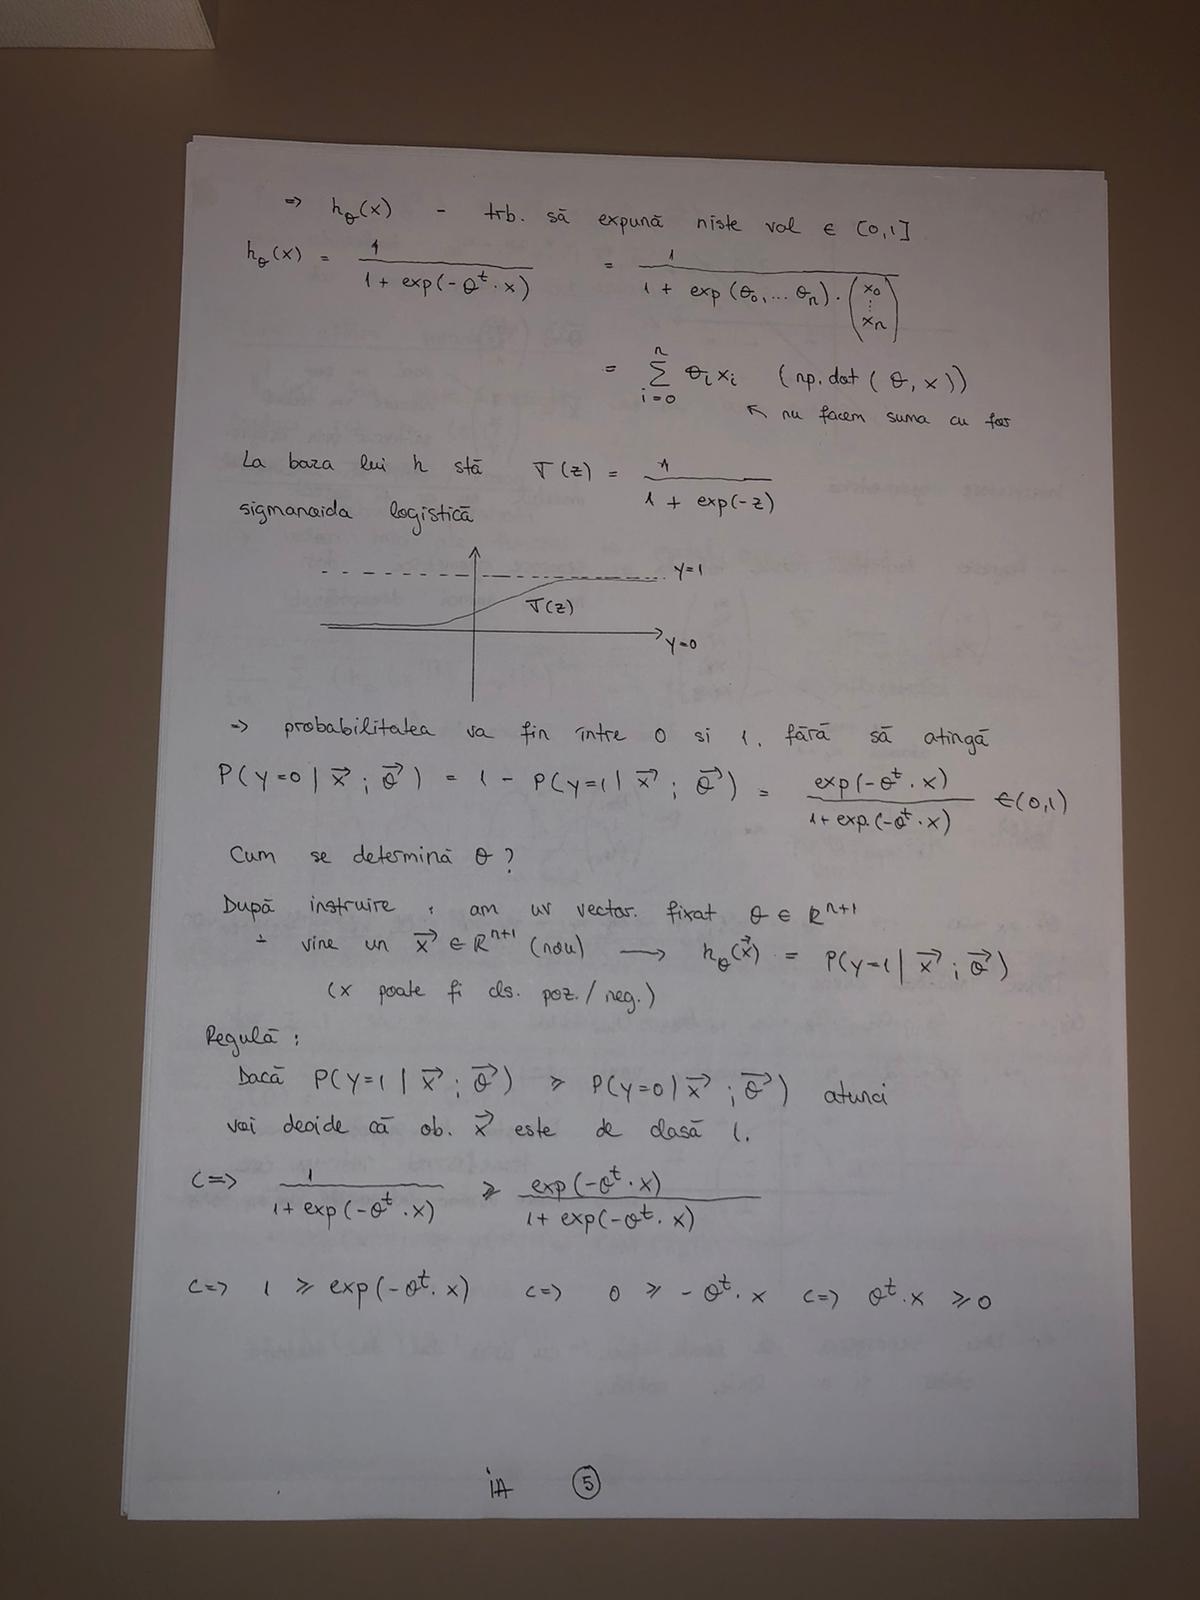 => hθ(x) - trb. să expună niste val ∈ [0,1]
hθ(x) = 1 / (1 + exp(-θᵗ·x)) = 1 / (1 + exp(θ₀,...θₙ)·(x₀ ⋮ xₙ))
= Σ_{i=0}^{n} θᵢxᵢ (np.dot(θ,x))
↖ nu facem suma cu for
La baza lui h stă T(z) = 1 / (1 + exp(-z))
sigmanoida logistică
y=1
T(z)
y=0
=> probabilitatea va fin între 0 si 1, fără să atingă
P(y=0 | x⃗ ; θ⃗) = 1 - P(y=1 | x⃗ ; θ⃗) = exp(-θᵗ·x) / (1+exp(-θᵗ·x)) ∈(0,1)
Cum se determină θ?
După instruire, am un vector fixat θ ∈ Rⁿ⁺¹
÷ vine un x⃗ ∈ Rⁿ⁺¹ (nou) → hθ(x⃗) = P(y=1 | x⃗ ; θ⃗)
(x poate fi cls. poz./neg.)
Regulă:
Dacă P(y=1 | x⃗ ; θ⃗) ≥ P(y=0 | x⃗ ; θ⃗) atunci
voi decide că ob. x⃗ este de clasă 1.
<=> 1 / (1+exp(-θᵗ·x)) ≥ exp(-θᵗ·x) / (1+exp(-θᵗ·x))
<=> 1 ≥ exp(-θᵗ·x) <=> 0 ≥ -θᵗ·x <=> θᵗ·x ≥ 0
iA 5